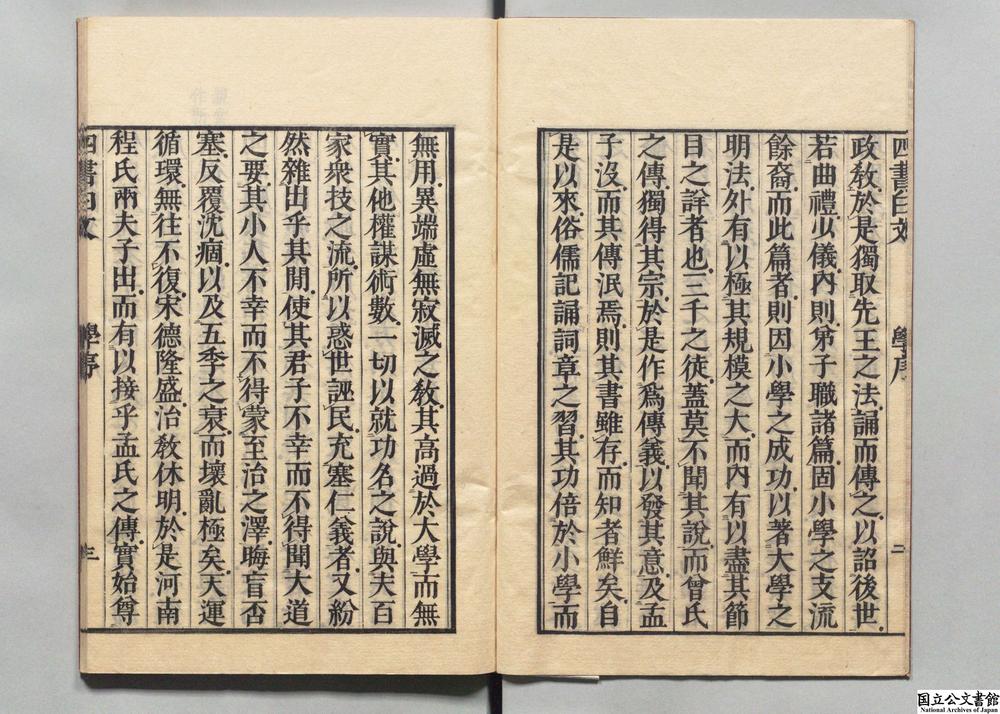 四書白文 學序 二
政敎於是獨取先王之法.誦而傳之.以詔後世.
若曲禮少儀內則.弟子職諸篇.固小學之支流
餘裔.而此篇者.則因小學之成功.以著大學之
明法.外有以極其規模之大.而內有以盡其節
目之詳者也.三千之徒.蓋莫不聞其說.而曾氏
之傳.獨得其宗.於是作爲傳義.以發其意.及孟
子沒.而其傳泯焉.則其書雖存.而知者鮮矣.自
是以來.俗儒記誦詞章之習.其功倍於小學而
無用.異端虛無寂滅之敎.其高過於大學而無
實.其他權謀術數.一切以就功名之說.與夫百
家衆技之流.所以惑世誣民.充塞仁義者.又紛
然雜出乎其閒.使其君子不幸而不得聞大道
之要.其小人不幸而不得蒙至治之澤.晦盲否
塞.反覆沈痼.以及五季之衰.而壞亂極矣.天運
循環.無往不復.宋德隆盛.治敎休明.於是河南
程氏兩夫子出.而有以接乎孟氏之傳.實始尊
四書白文 學序 三
国立公文書館
National Archives of Japan